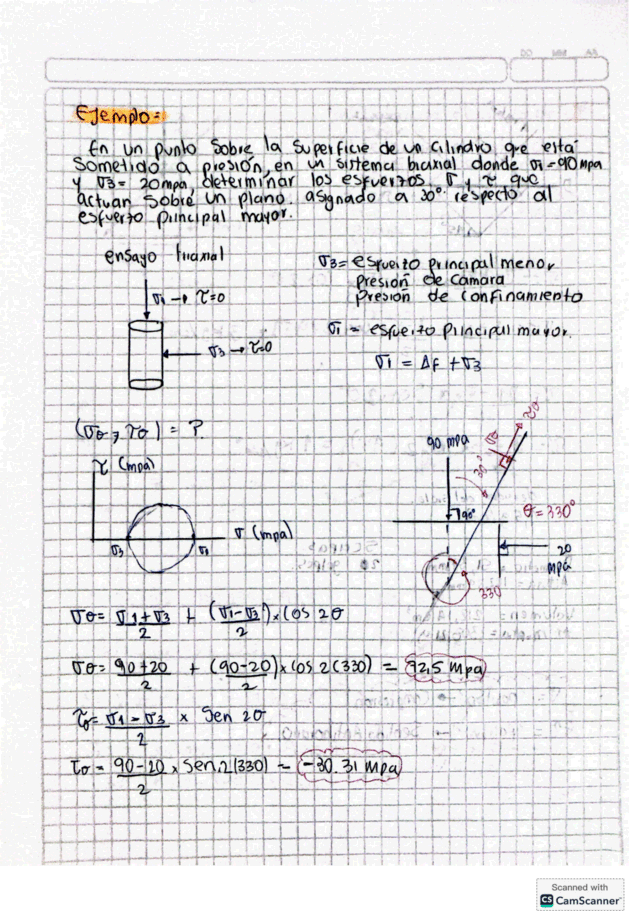 Ejemplo:
En un punto sobre la superficie de un cilindro que está
sometido a presión, en un sistema biaxial donde σ1=90mpa
y σ3= 20mpa, determinar los esfuerzos σ y τ que
actuan sobre un plano. asignado a 30° respecto al
esfuerzo principal mayor.
ensayo triaxial
σ1 → τ=0
σ3 → τ=0
σ3= esfuerzo principal menor
Presión de Cámara
Presión de confinamiento
σ1 = esfuerzo principal mayor.
σ1 = Δf + σ3
(σθ, τθ) = ?
τ (mpa)
σ3
σ1
σ (mpa)
90 mpa
30°
σθ
τθ
90°
θ=330°
20
mpa
330
σθ= σ1+σ3/2 + (σ1-σ3)/2 × Cos 2θ
σθ= 90+20/2 + (90-20)/2 × Cos 2(330) = 72,5 Mpa
τθ= σ1-σ3/2 × Sen 2θ
τθ= 90-20/2 × Sen.2(330) = -30.31 Mpa
Scanned with
CS CamScanner